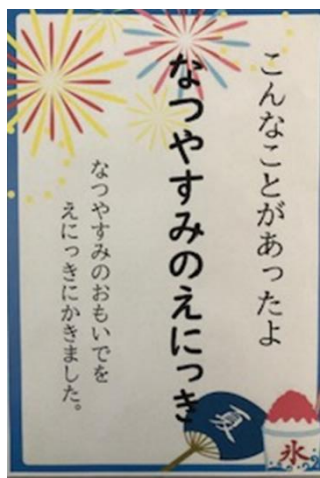 こんなことがあったよ
なつやすみのえにっき
なつやすみのおもいでを
えにっきにかきました。
夏
氷